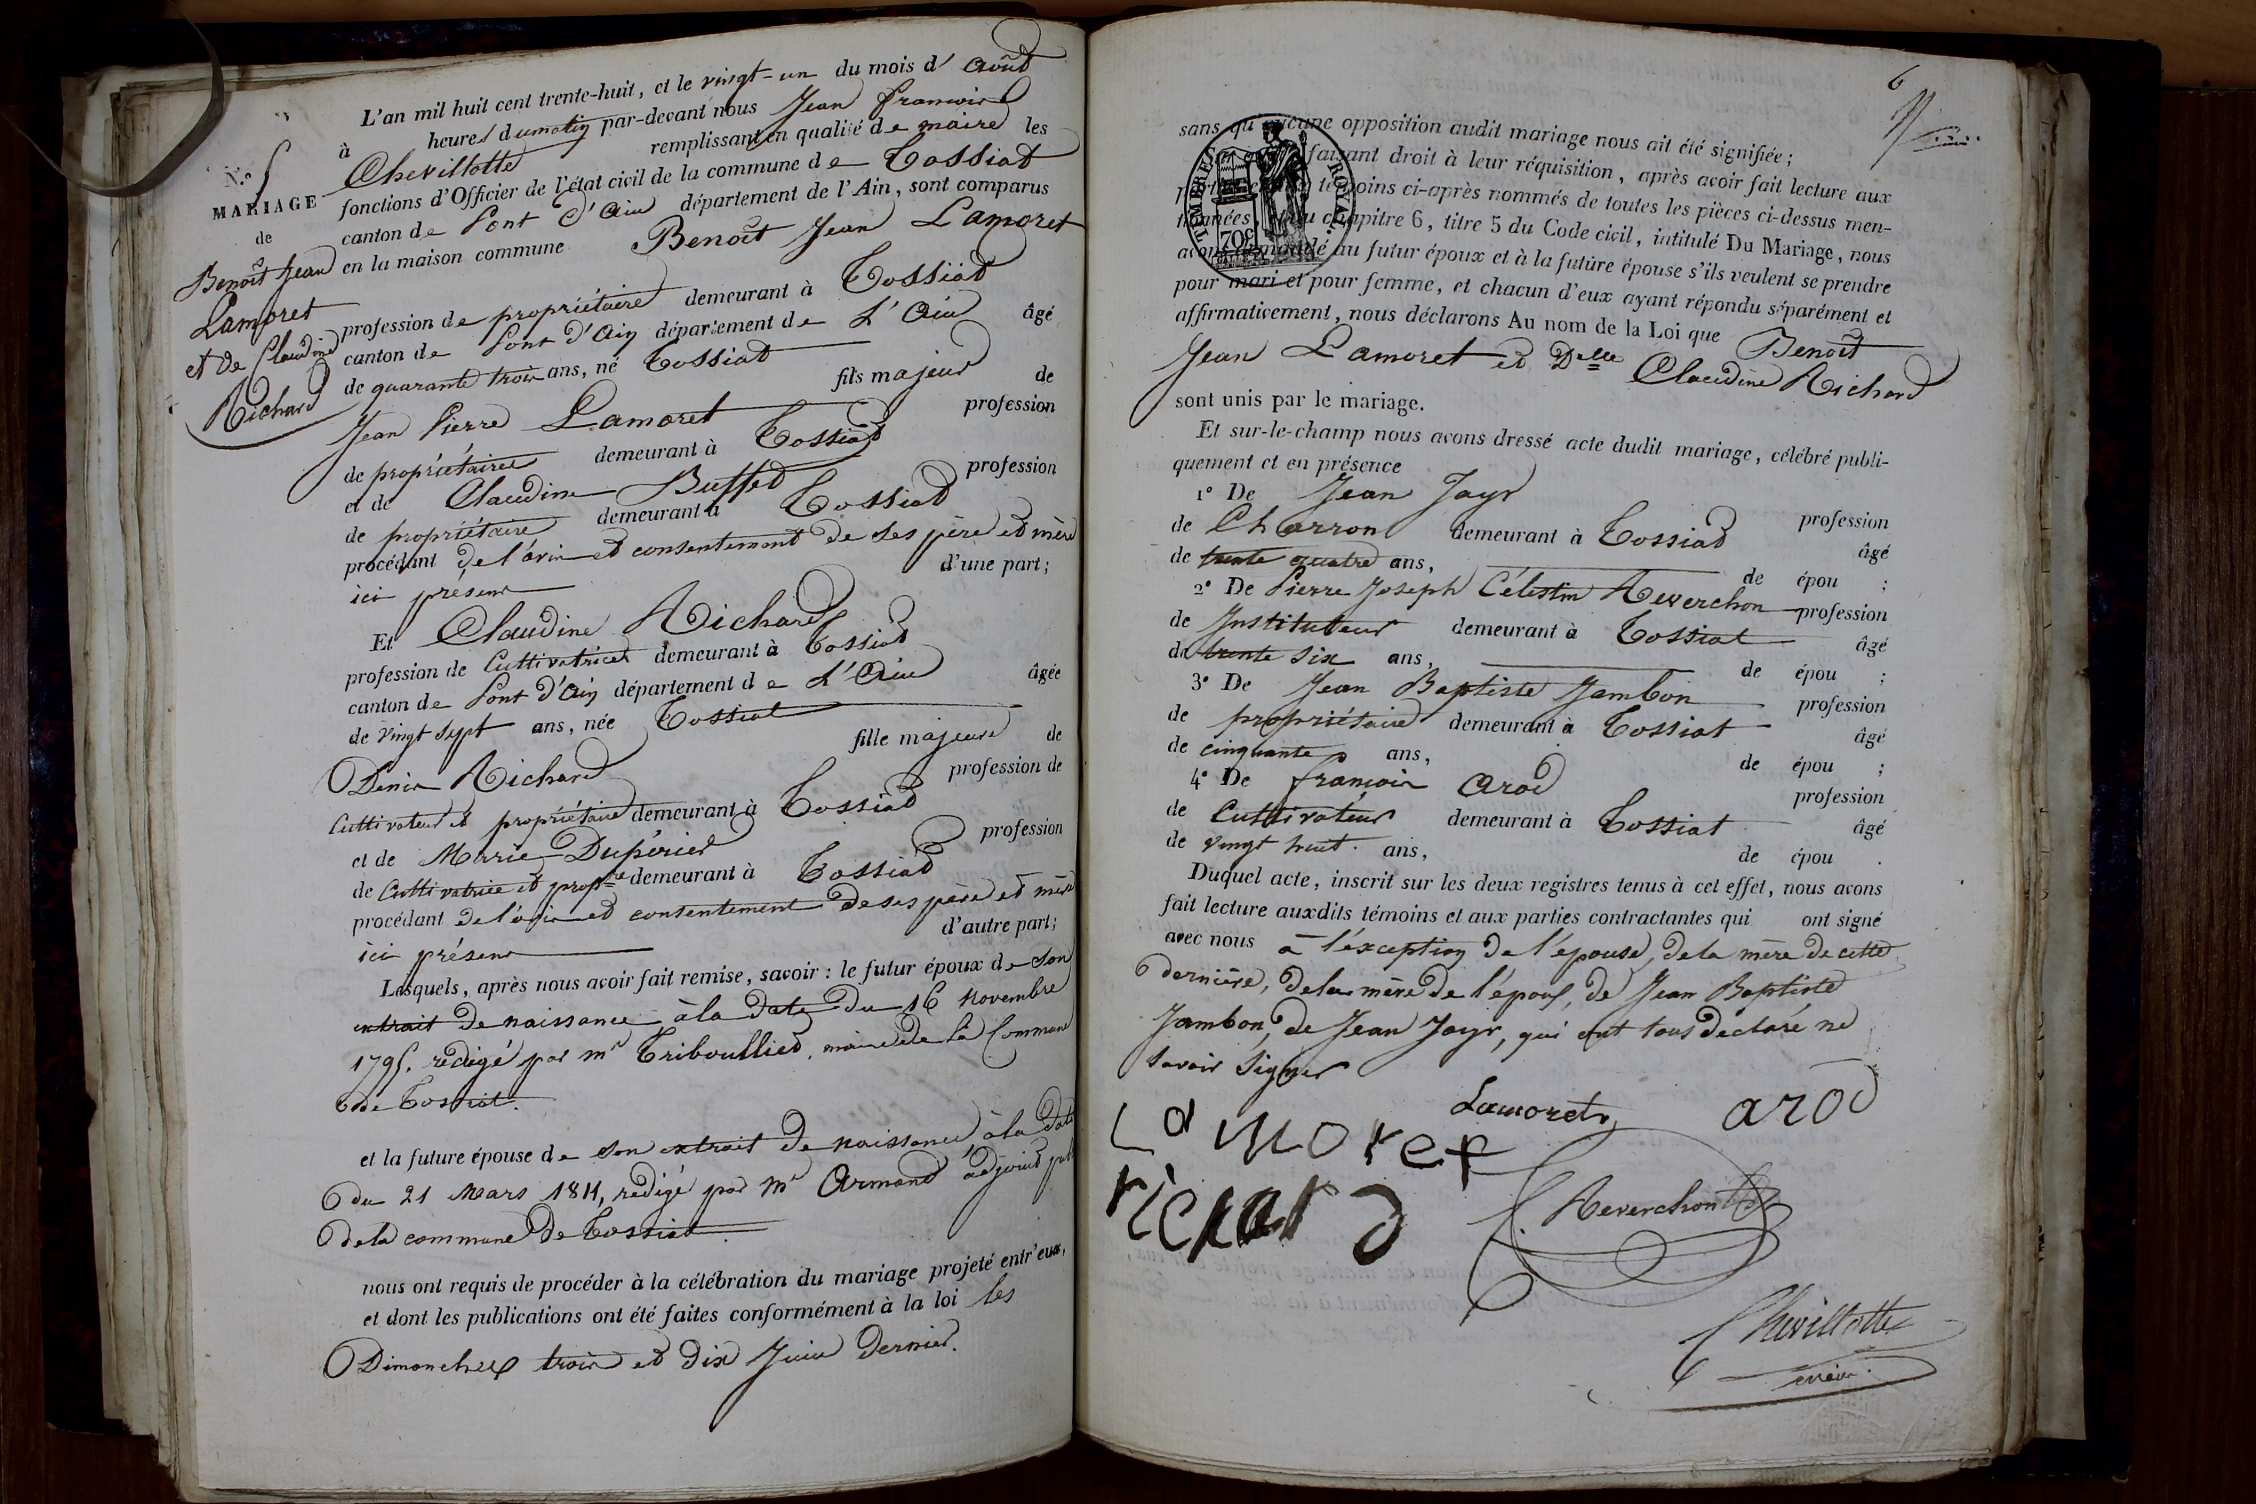 L'an mil huit cent trente-huit, et le vingt-un du mois d' août
à heures du matin par-devant nous Jean francois
Chevillotte remplissant en qualité de maire les
fonctions d'Officier de l'état civil de la commune de Tossiat
canton de Pont d'ain département de l'Ain, sont comparus
en la maison commune Benoît Jean Lamoret
N.o 5
MARIAGE
de
Benoît Jean
Lamoret
et de Claudine
Richard
profession de propriétaire demeurant à Tossiat
canton de Pont d'ain département de L'Ain âgé
de quarante trois ans, né Tossiat
fils majeur de
Jean Pierre Lamoret profession
de propriétaire demeurant à Tossiat
et de Claudine Buffet profession
de propriétaire demeurant à Tossiat
procédant de l'avis et consentement de ses père et mère
ici présens d'une part;
Et Claudine Richard
profession de Cultivatrice demeurant à Tossiat
canton de Pont d'ain département de L'Ain âgée
de vingt sept ans, née Tossiat
fille majeure de
Denis Richard profession de
Cultivateur et propriétaire demeurant à Tossiat
et de Marie Dupérier profession
de Cultivatrice et prop.re demeurant à Tossiat
procédant de l'avis et consentement de ses père et mère
ici présens d'autre part;
Lesquels, après nous avoir fait remise, savoir: le futur époux de son
extrait de naissance à la date du 16 novembre
1795. rédigé par mr Triboullier, maire de la Commune
de Tossiat.
et la future épouse de son extrait de naissance à la date
du 21 Mars 1811, redigé par mr Armand adjoint
de la commune de Tossiat.
nous ont requis de procéder à la célébration du mariage projeté entr'eux,
et dont les publications ont été faites conformément à la loi les
Dimanches trois et dix Juin dernier.
6
sans qu'aucune opposition audit mariage nous ait été signifiée;
faisant droit à leur réquisition, après avoir fait lecture aux
témoins ci-après nommés de toutes les pièces ci-dessus men-
tionnées et du chapitre 6, titre 5 du Code civil, intitulé Du Mariage, nous
avons demandé au futur époux et à la future épouse s'ils veulent se prendre
pour mari et pour femme, et chacun d'eux ayant répondu séparément et
affirmativement, nous déclarons Au nom de la Loi que Benoît
TIMBRE ROYAL.
70c
Jean Lamoret et Delle Claudine Richard
sont unis par le mariage.
Et sur-le-champ nous avons dressé acte dudit mariage, célébré publi-
quement et en présence
1° De Jean Jayr profession
de Charron demeurant à Tossiat âgé
de trente quatre ans, de épou ;
2° De Pierre Joseph Célestin Reverchon profession
de Instituteur demeurant à Tossiat âgé
de trente six ans, de épou ;
3° De Jean Baptiste Jambon profession
de propriétaire demeurant à Tossiat âgé
de cinquante ans, de épou ;
4° De françois Arod profession
de Cultivateur demeurant à Tossiat âgé
de vingt huit ans, de épou .
Duquel acte, inscrit sur les deux registres tenus à cet effet, nous avons
fait lecture auxdits témoins et aux parties contractantes qui ont signé
avec nous à l'éxception de l'épouse, de la mère de cette
dernière, de la mère de l'époux, de Jean Baptiste
Jambon, de Jean Jayr, qui ont tous déclaré ne
savoir Signer
Lamoret arod
Lamoret
richard
Reverchon
Chevillotte
maire